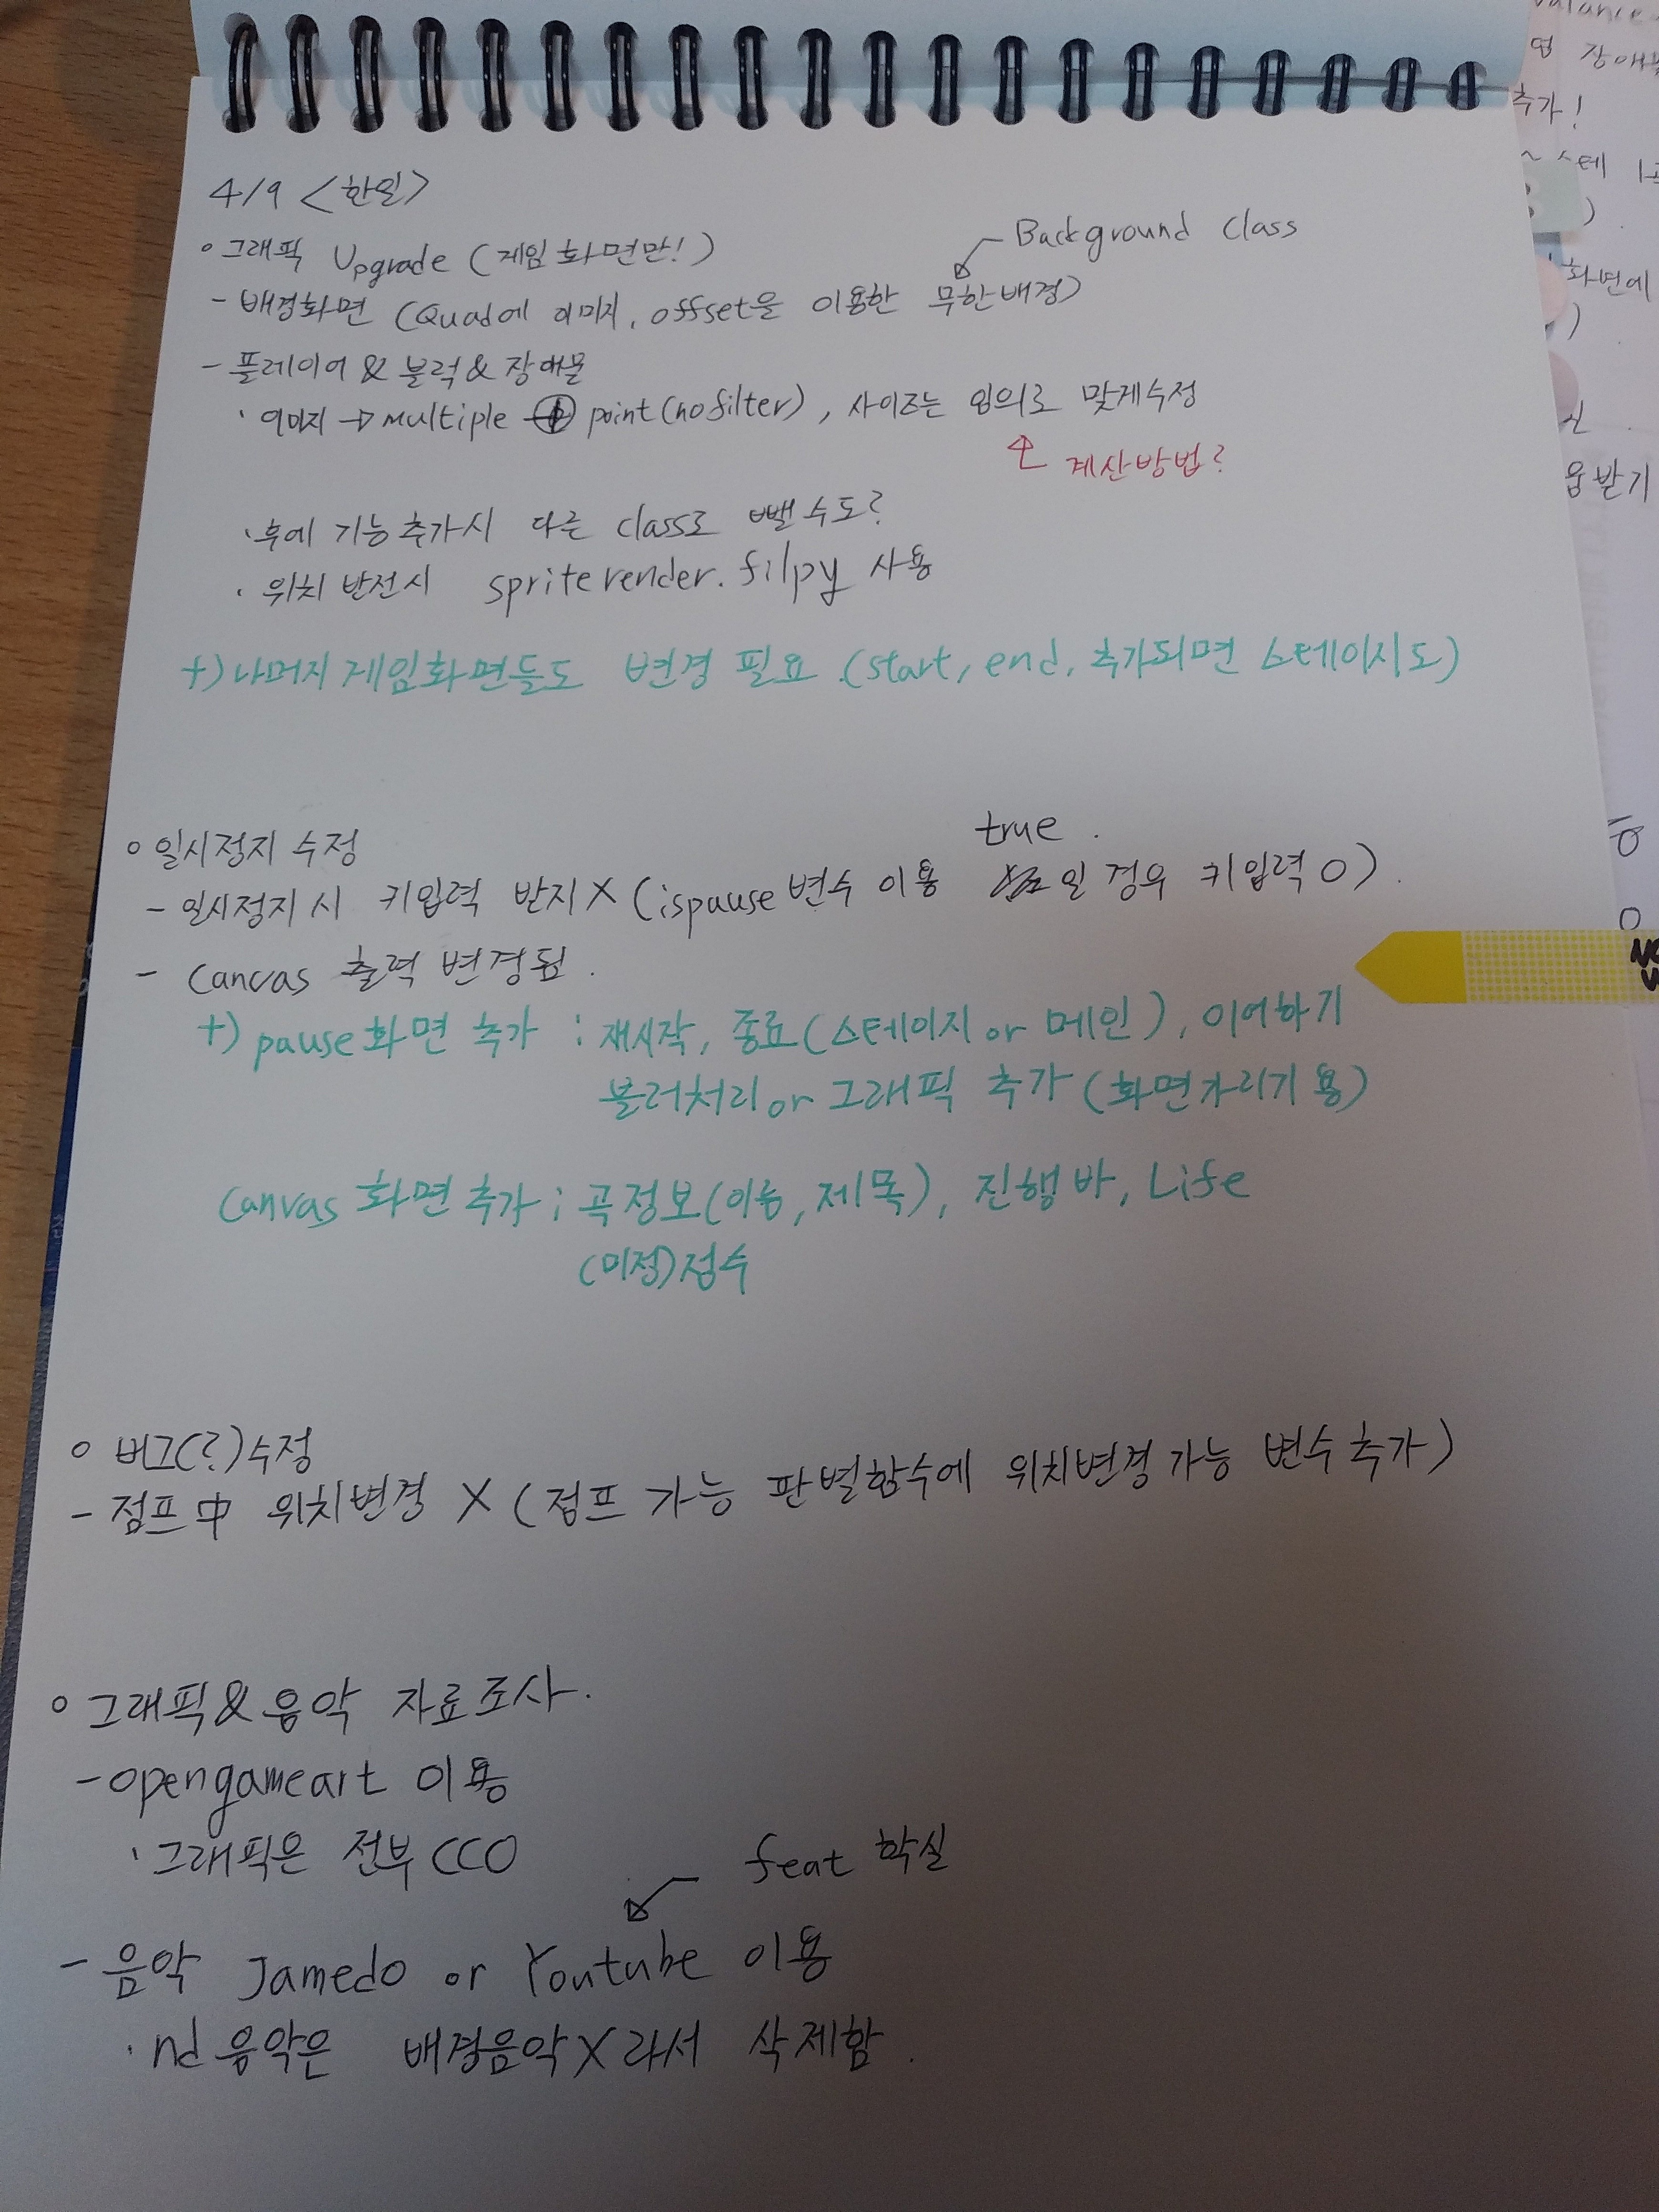 4/9 <한일>
◦ 그래픽 Upgrade (게임화면만!)
Background Class
- 배경화면 (Quad에 이미지, offset을 이용한 무한배경)
- 플레이어 & 블럭 & 장애물
· 이미지 → multiple + point(no filter), 사이즈는 임의로 맞게수정
계산방법?
· 후에 기능추가시 다른 class로 뺄수도?
· 위치 반전시 spriterender.filpy 사용
+) 나머지 게임화면들도 변경 필요 (start, end, 추가되면 스테이지도)
◦ 일시정지 수정
true
- 일시정지시 키입력 받지X (ispause 변수 이용 일 경우 키입력 O)
- Canvas 출력 변경됨.
+) pause화면 추가 : 재시작, 종료(스테이지 or 메인), 이어하기
블러처리 or 그래픽 추가 (화면가리기용)
Canvas 화면 추가 : 곡정보(이름, 제목), 진행바, Life
(미정)점수
◦ 버그(?)수정
- 점프中 위치변경 X (점프 가능 판별함수에 위치변경가능 변수추가)
◦ 그래픽&음악 자료조사.
- opengameart 이용
· 그래픽은 전부 CCO
feat 학실
- 음악 Jamedo or Youtube 이용
· nd 음악은 배경음악X라서 삭제함.
추가!
화면에
NO